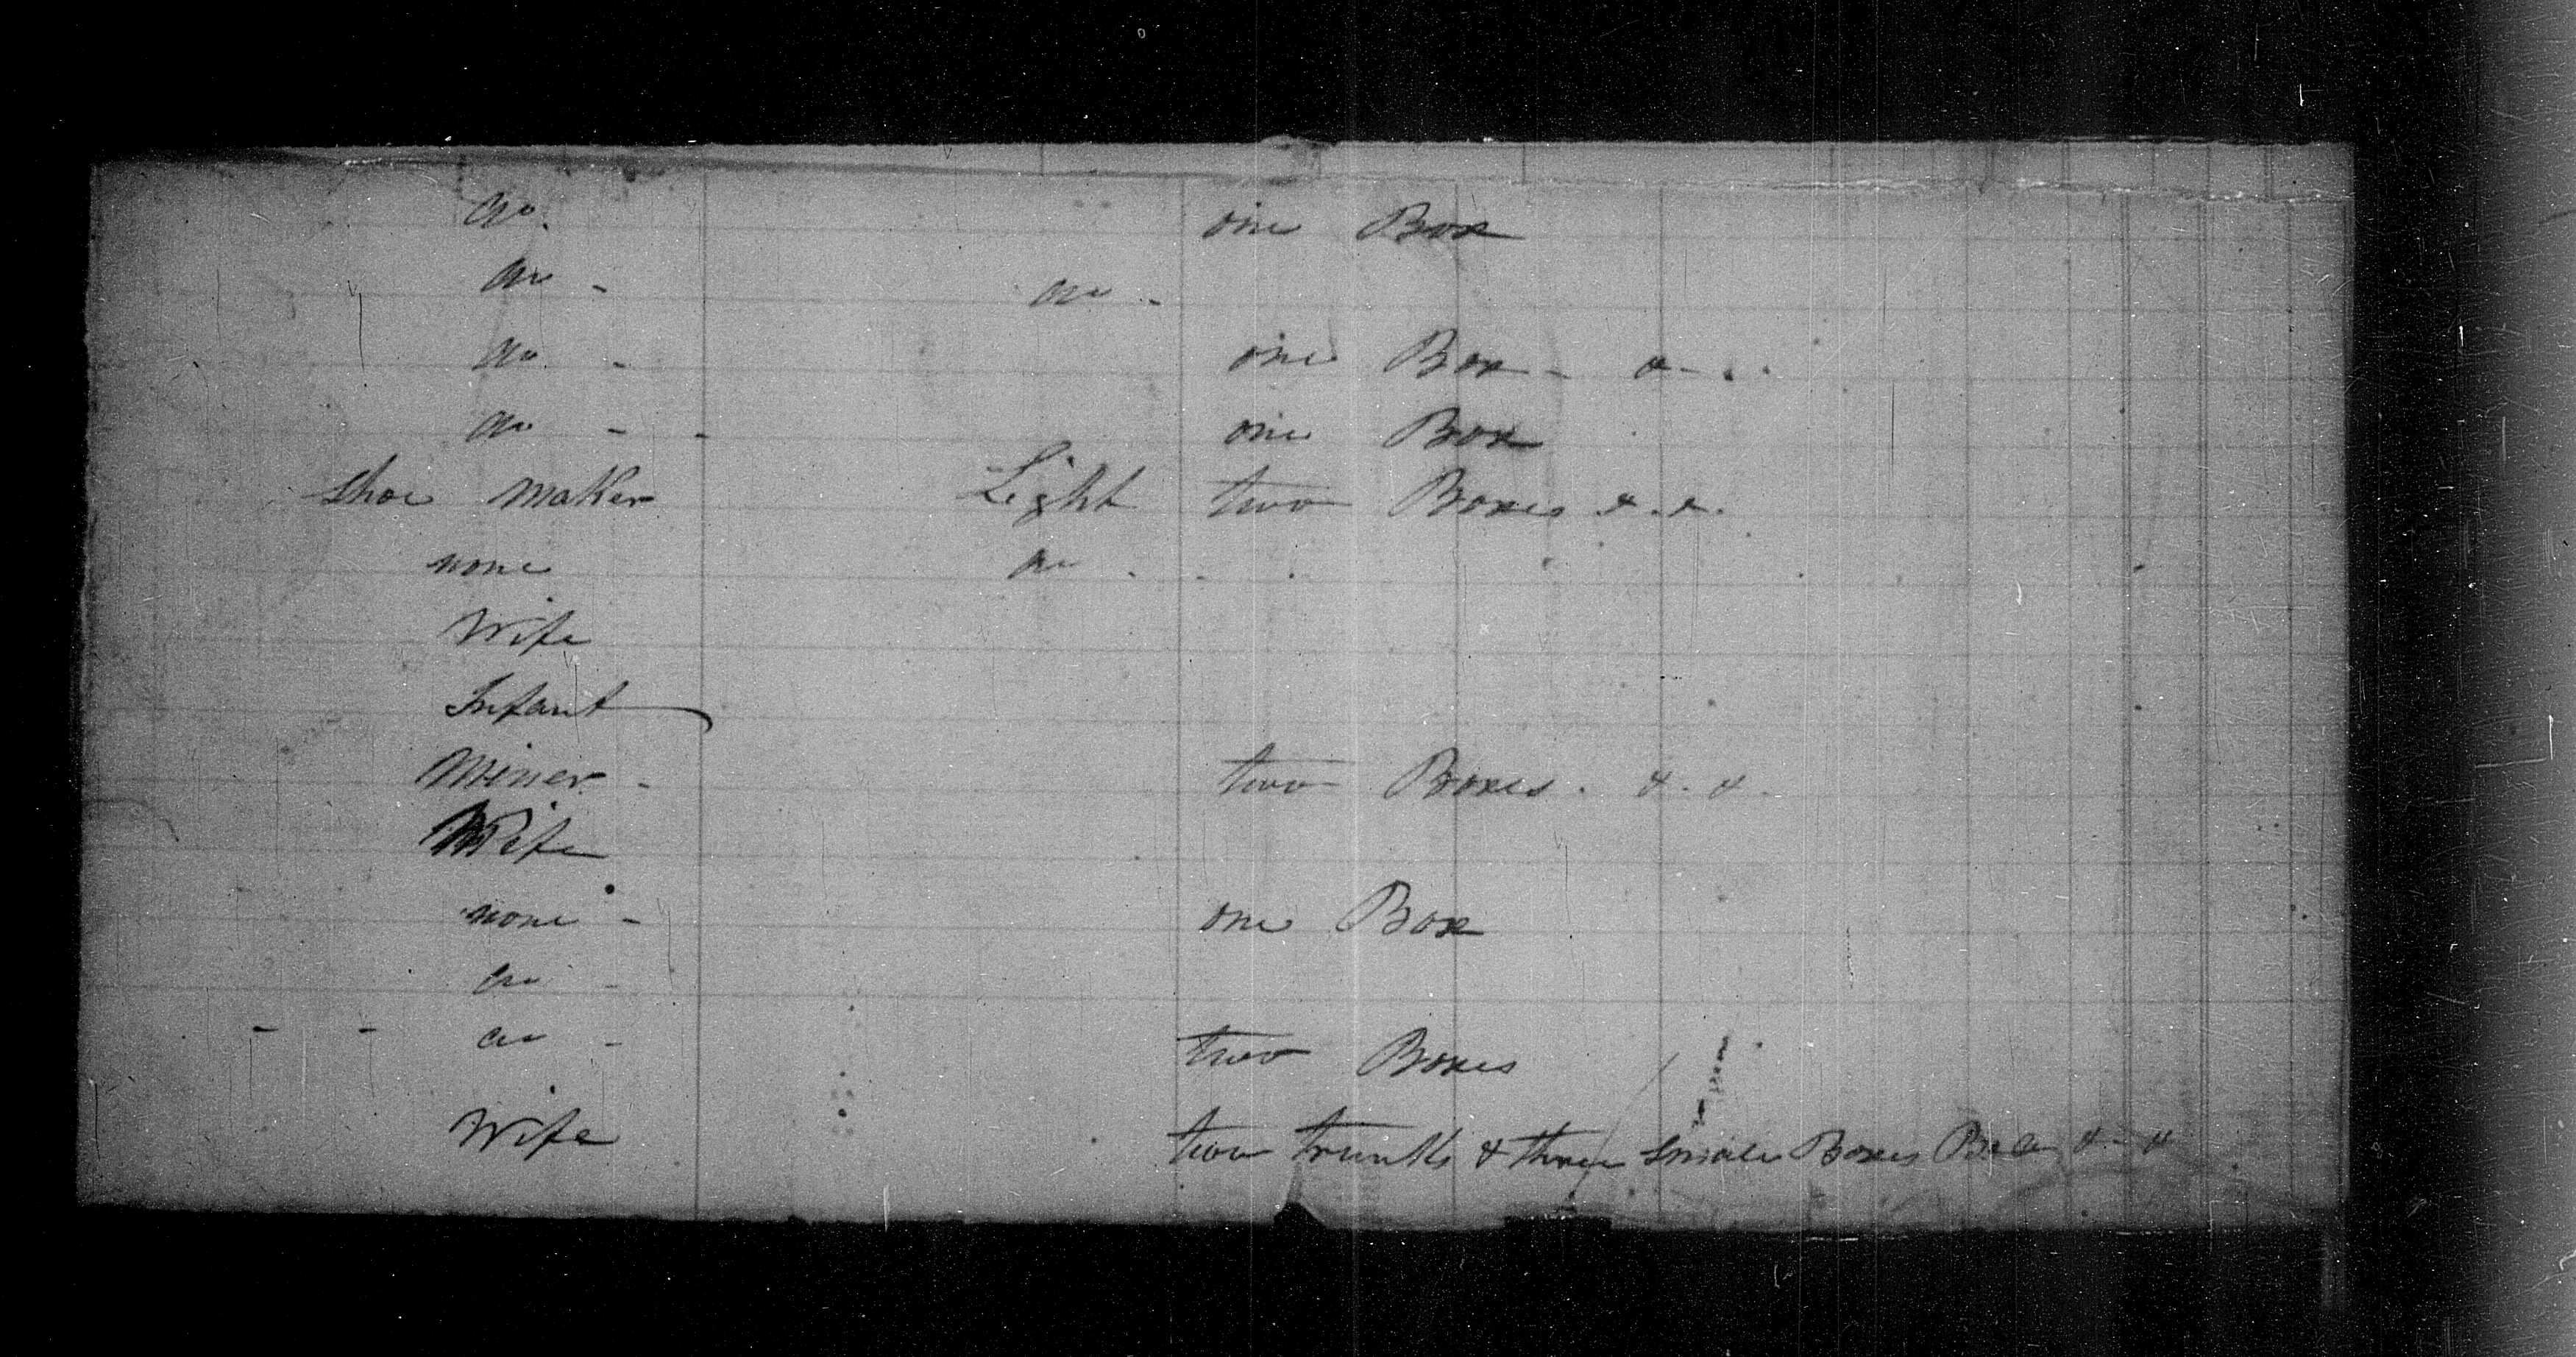 do. one Box
do - do -
do. - one Box - &. - . .
do - - one Box
Shoe Maker Light two Boxes &. &.
none do - .
Wife
Infant
Miner - two Boxes. &. &.
Wife
none - one Box
do -
- - do - two Boxes
Wife two trunks & three Small Boxes &. &